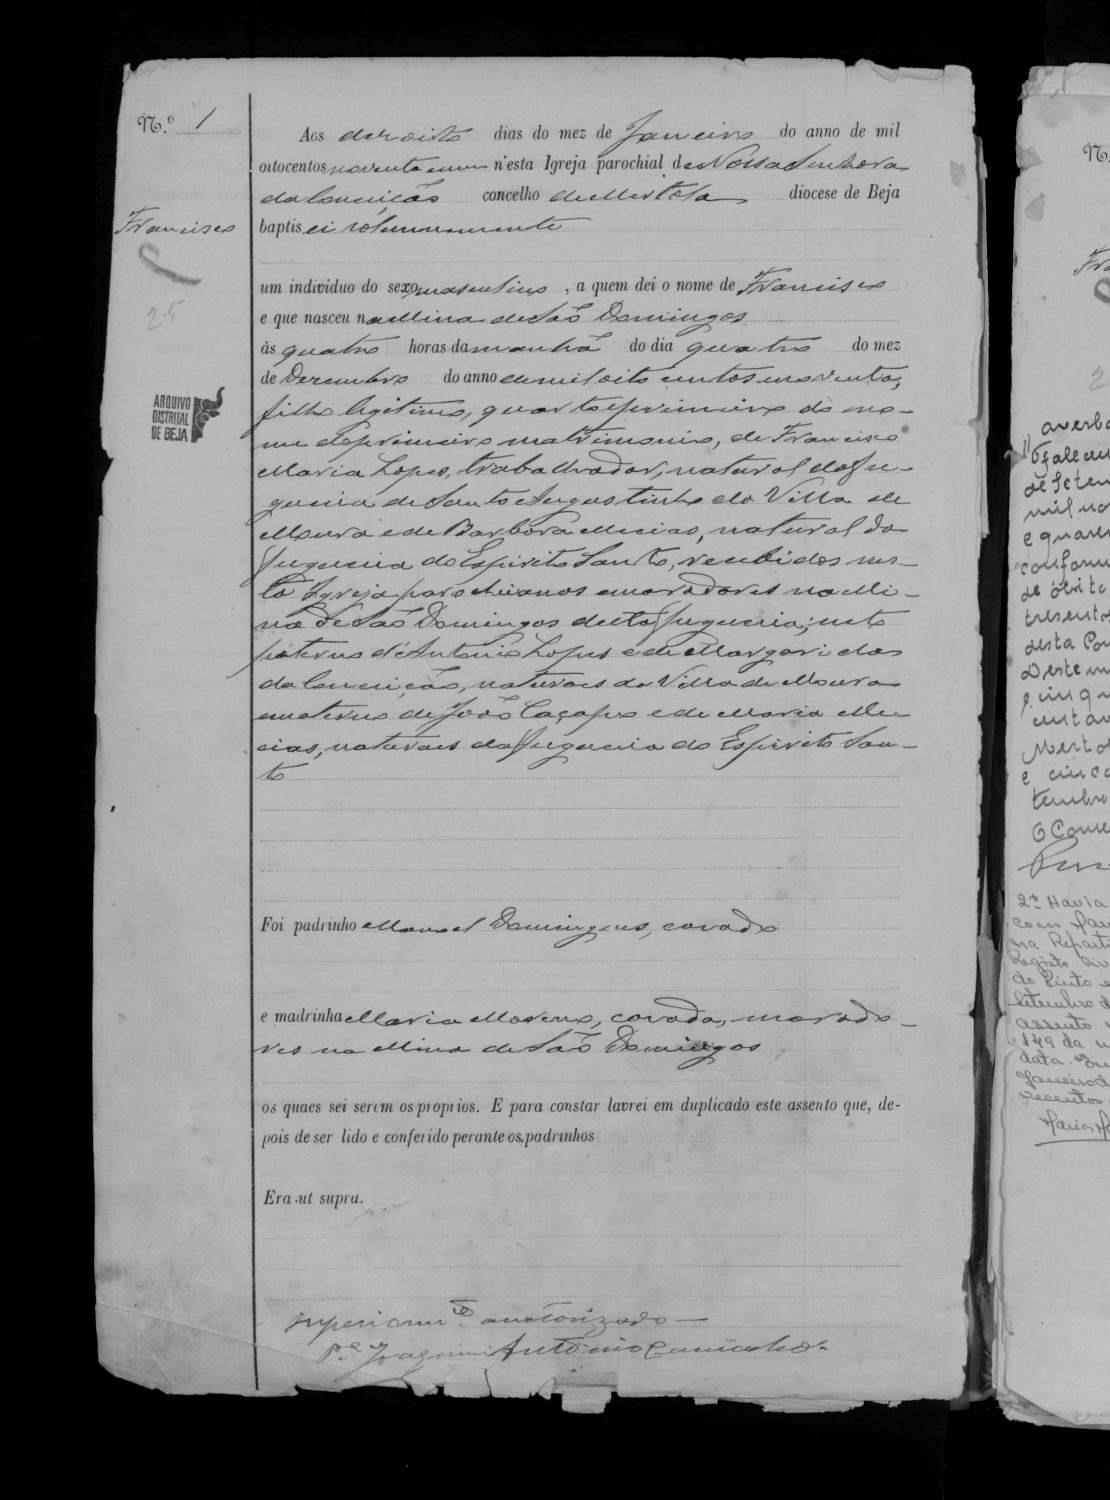 N.º 1
Aos dezoito dias do mez de Janeiro do anno de mil
oitocentos noventa e um n'esta Igreja parochial de Nossa Senhora
da Conceição concelho de Mertola diocese de Beja
Francisco
baptisei solemnemente
um individuo do sexo masculino, a quem dei o nome de Francisco
e que nasceu na Mina de São Domingos
25
ás quatro horas da manhã do dia quatro do mez
de Dezembro do anno de mil oito centos e noventa,
ARQUIVO
DISTRITAL
DE BEJA
filho legitimo, quarto e primeiro do no-
me do primeiro matrimonio, de Francisco
Maria Lopes, trabalhador, natural da fre-
guezia de Santo Augostinho da Villa de
Moura e de Barbora Mecias, natural da
freguezia do Espirito Santo, recebidos nes-
ta Igreja parochianos e moradores na Mi-
na de São Domingos desta freguezia; neto
paterno d'Antonio Lopes e de Margarida
da Conceição, naturaes da Villa de Moura
e materno de João Caçapo e de Maria Me
cias, naturaes da freguezia do Espirito San-
to
Foi padrinho Manoel Domingues, casado
e madrinha Maria Moreno, casada, morado-
res na Mina de São Domingos
os quaes sei serem os proprios. E para constar lavrei em duplicado este assento que, de-
pois de ser lido e conferido perante os padrinhos
Era ut supra.
superiorm.te auctorizado
P.e Joaquim Antonio
N.
averb
faleceu
de Setem
mil no
e quare
conform
de óbito
desta Con
Deste m
Mertol
e cinco
tembro
O Conse
2º Havia
com
na Reparti
Registo Civ
de
Setembro d
assento
149 da
data. Em
Janeiro d